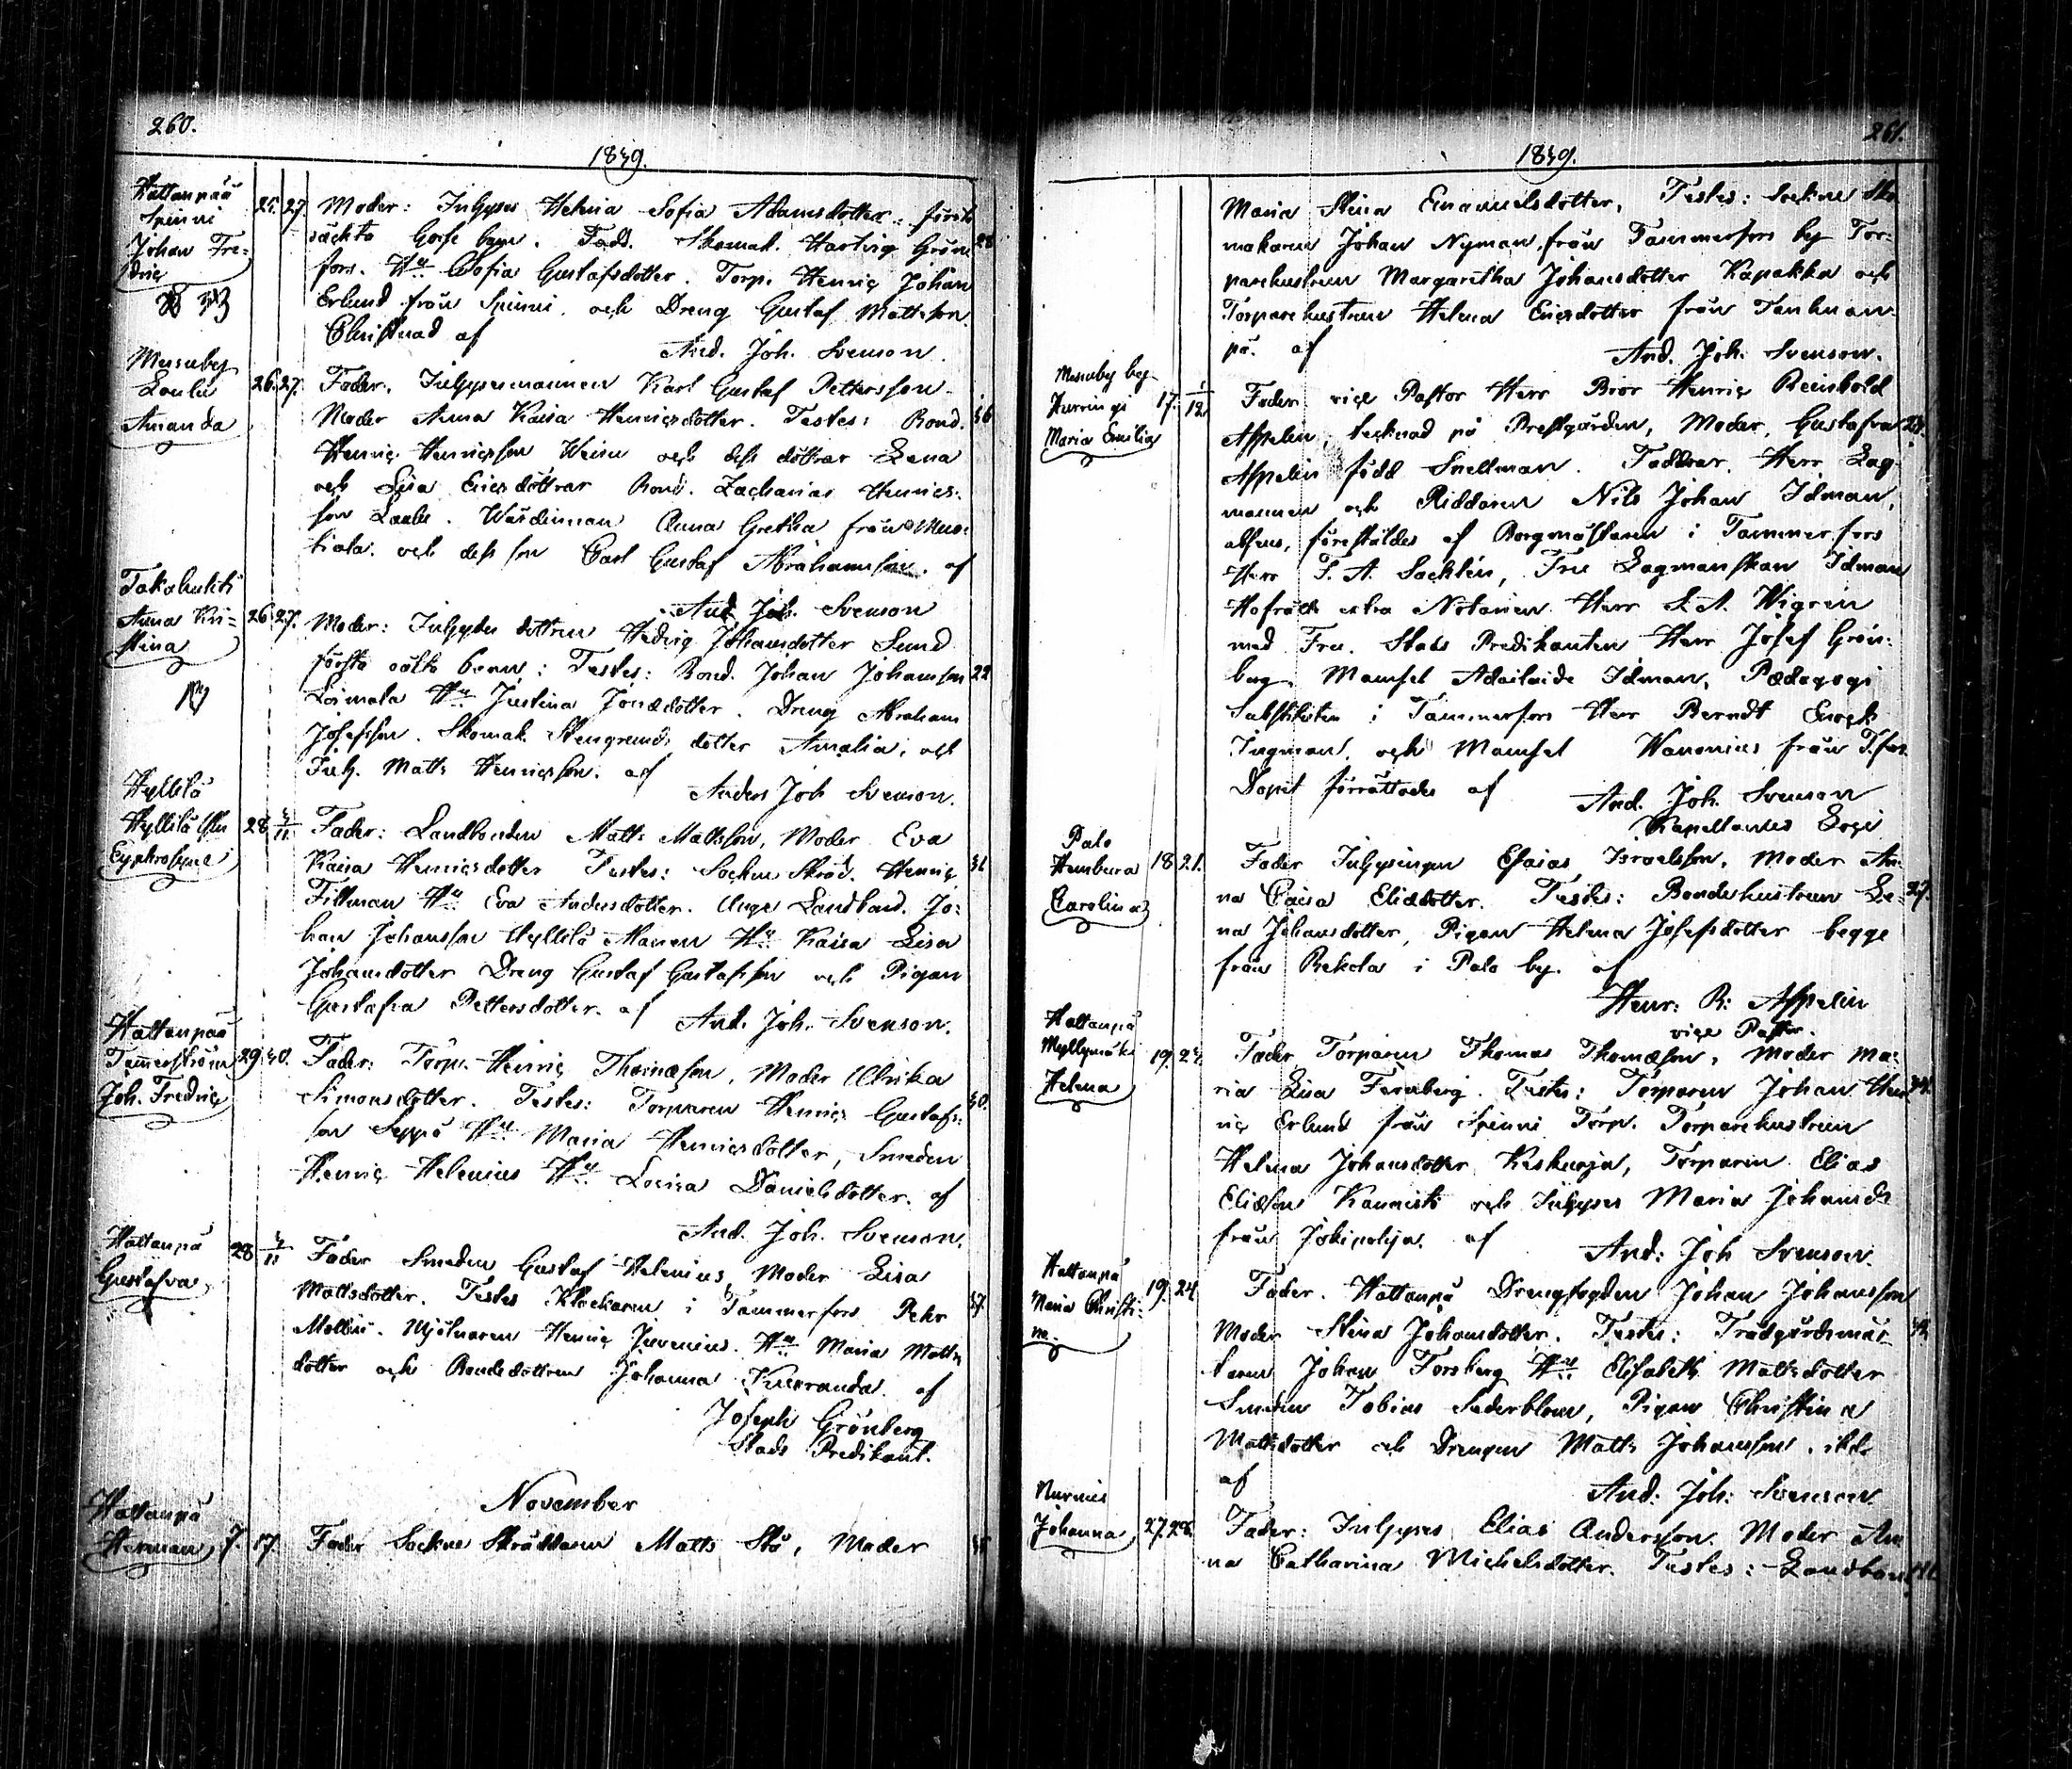 260.
1839.
Hattanpää
Spinni
Johan Fre-
dric
25. 27. Moder: Inhyses Helena Sofia Adamsdotter: första
oäckta barn. Fadd. Skomak. Hartvig Grön 28
fors. Hu Sofia Gustafsdotter. Torp. Henric Johan
Erlund från Spinni, och Dreng Gustaf Mattsson.
Christnad af And. Joh. Svenson.
Messuby
Laulu
Amanda
26. 27. Fader. Inhysesmannen Karl Gustaf Pettersson.
Moder Anna Kaisa Henricsdotter. Testes: Bond. 36
Henric Henricsson och dess döttrar Lena
och Lisa Ericsdöttrar Bond. Zacharias Henrics-
son Laulu. Värdinnan Anna Gretha från Mus-
tiala. och dess son Carl Gustaf Abrahamsson. af
And. Joh. Svenson
Takahuhti
Anna Kri-
stina
26. 27. Moder: Inhyses dottren Hedvig Johansdotter Sund
första oäkta barn: Testes: Bond. Johan Johansson 22
Loimala Hu Justina Jonædotter. Dreng Abraham
Josefsson. Skomak. Stengrunds dotter Amalia, och
Inh. Matts Henricsson. af Anders Joh Svenson.
Hyllilä
Hyllilä
Euphrosyne
28 4/11 Fader: Landbonden Matts Mattsson, Moder Eva
Kaisa Henricsdotter Testes: Socken Skräd. Henric 36
Tillman Hu Eva Andersdotter. Unge Landbond. Jo-
han Johansson Hyllilä Manen Hu Kaisa Lisa
Johansdotter Dreng Gustaf Gustafsson och Pigan
Gustafva Pettersdotter. af And. Joh. Svenson.
Hattanpää
Tamerström
Joh. Fredric
29. 30. Fader: Torp. Henric Thomæson, Moder Ulrika
Simonsdotter. Testes: Torparen Henric Gustafs- 30.
son Seppä Hu Maria Henricsdotter, Smeden
Henric Helenius Hu Lovisa Danielsdotter. af
And. Joh. Svenson.
Hattanpä
Gustafva
28 4/11 Fader Smeden Gustaf Helenius, Moder Lisa
Mattsdotter. Testes Klockaren i Tammerfors Pehr 37.
Mollin. Mjölnaren Henric Juvenius. Hu Maria Matts
dotter och Bondedottren Johanna af
Joseph Grönberg
Stads Predikant.
November
Hattanpä
Herman
7. 17. Fader Socken Skräddaren Matts Stå, Moder
261.
1839.
Maria Stina Emanuelsdotter, Testes: Socken Sko
makaren Johan Nyman från Tammerfors by Tor-
parehustrun Margaretha Johansdotter Kapakka och
Torparehustrun Helena Ericsdotter från Tanhuan-
pä. af And. Joh. Svenson.
Messuby by
Hurringi
Maria Emilia
17. 1/12 Fader vice Pastor Herr Bror Henric Reinhold
Appelin, tecknad på Prestgården, Moder, Gustafva 24.
Appelin född Snellman. Faddrar. Herr Lag-
mannen och Riddaren Nils Johan Idman,
absens, föreställdes af Borgmästaren i Tammerfors
Herr F. A. Sacklén, Fru Lagmanskan Idman
Hofrätts extra Notarien Herr S. A. Wigren
med Fru. Stads Predikanten Herr Josef Grön-
berg. Mamsel Adelaide Idman, Pædagogi
Substituten i Tammerfors Herr Berndt Enoch
Ingman, och Mamsel Wanonius från T.fors.
Dopet förrättades af And. Joh. Svenson
Kapellanus Loci
Palo
Hembura
Carolina
18 21. Fader Inhysingen Esaias Israelsson, Moder An-
na Caisa Eliædotter. Testes: Bondehustrun Le- 27.
na Johansdotter, Pigan Helena Josefsdotter begge
från Rekola i Palo by. af
Henr: R: Appelin
vice Pastor.
Hattanpä
Myllymäki
Helena
19. 24. Fader Torparen Thomas Thomæson, Moder Ma-
ria Lisa Fernberg. Testes: Torparen Johan Hen-
ric Erlund från Spinni Torp. Torparehustrun
Helena Johansdotter Keskusja, Torparen Elias
Eliæson Kaunisto och Inhyses Maria Johansdr
från Jokipohja. af And: Joh Svenson.
Hattanpä
Maria Christi-
na
19. 24. Fader. Hattanpä Drengfogden Johan Johansson
Moder Stina Johansdotter. Testes: Trädgårdsmäs-
taren Johan Forsberg Hu Elisabeth Mattsdotter
Smeden Tobias Söderblom, Pigan Christina
Mattsdotter och Drengen Matts Johansson.
af And: Joh: Svenson
Nurmis
Johanna
27. 28. Fader: Inhyses Elias Andersson. Moder An
na Catharina Michelsdotter. Testes: Landbon